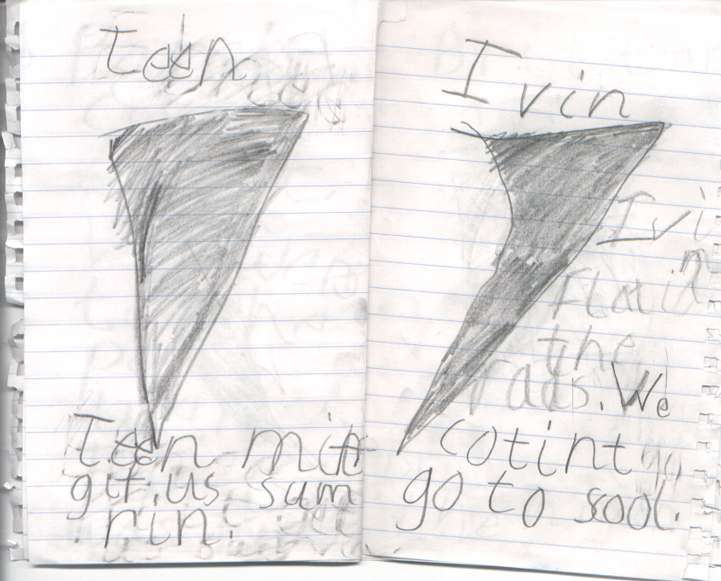 Teen
Teen mit
git us sum
rin.
Ivin
Ivi
n
Flaid
the
rads. We
cotint
go to sool.